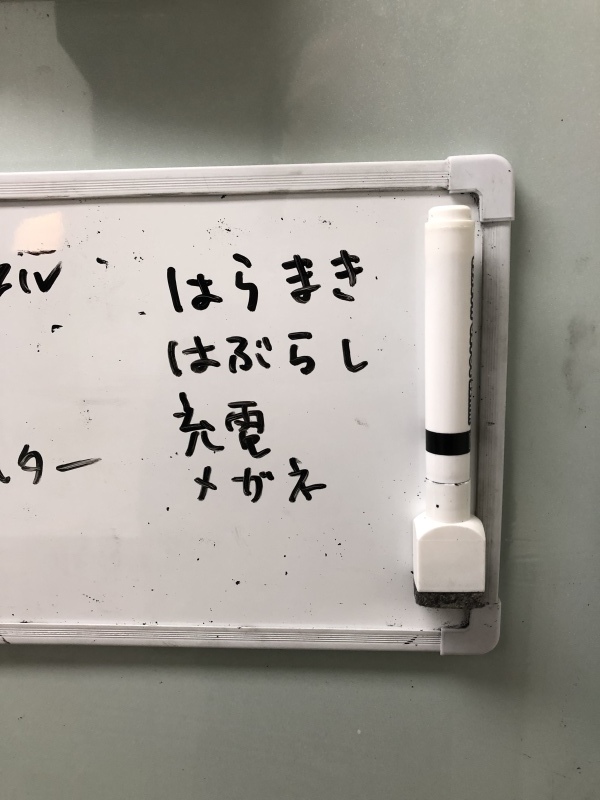 はらまき
はぶらし
充電
メガネ
ター